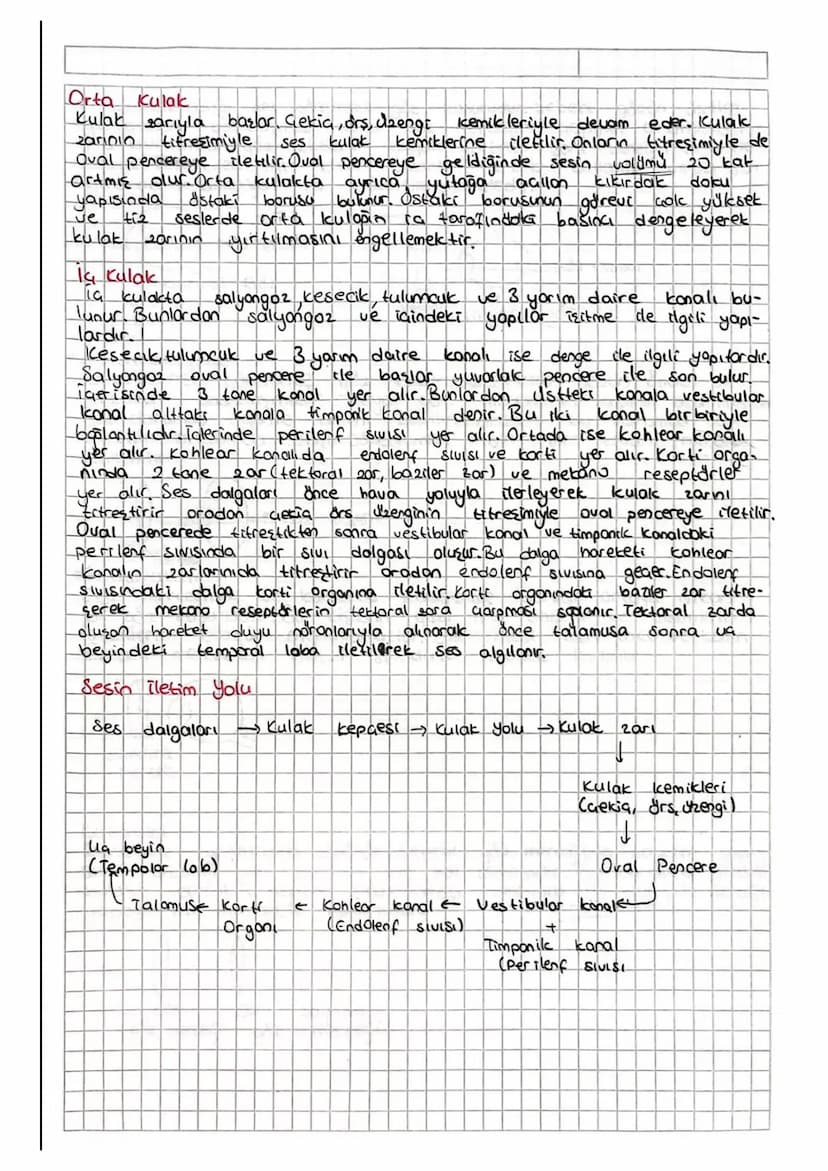 Orta Kulak
Kulak zarıyla başlar. Çekiç, örs, üzengi kemikleriyle devam eder. Kulak
zarının titreşimiyle ses kulak kemiklerine iletilir. Onların titreşimiyle de
Oval pencereye iletilir. Oval pencereye geldiğinde sesin volümü 20 kat
artmış olur. Orta kulakta ayrıca yutağa açılan kıkırdak doku
yapısında östaki borusu bulunur. Östaki borusunun görevi çok yüksek
ve tiz seslerde orta kulağın iç tarafındaki basıncı dengeleyerek
kulak zarının yırtılmasını engellemektir.
İç Kulak
İç kulakta salyangoz, kesecik, tulumcuk ve 3 yarım daire kanalı bu-
lunur. Bunlardan salyangoz ve içindeki yapılar işitme ile ilgili yapı-
lardır.
Kesecik, tulumcuk ve 3 yarım daire kanalı ise denge ile ilgili yapılardır.
Salyangoz oval pencere ile başlar yuvarlak pencere ile son bulur.
içerisinde 3 tane kanal yer alır. Bunlardan üstteki kanala vestibular
kanal alttaki kanala timponik kanal denir. Bu iki kanal birbiriyle
bağlantılıdır. İçlerinde perilenf sıvısı yer alır. Ortada ise kohlear kanalı
yer alır. kohlear kanalıda endolenf sıvısı ve korti yer alır. Korti orga-
nında 2 tane zar (tektoral zar, baziler zar) ve mekano reseptörler
yer alır. Ses dalgaları önce hava yoluyla ilerleyerek kulak zarnı
titreştirir oradan çekiç örs üzenginin titreşimiyle oval pencereye iletilir.
Oval pencerede titreştikten sonra vestibular kanal ve timponik kanaldaki
perilenf sıvısında bir sıvı dalgası oluşur. Bu dalga hareketi kohlear
kanalın zarlarınıda titreştirir oradan endolenf sıvısına geçer. Endolenf
sıvısındaki dalga korti organına iletilir. Korti organındaki baziler zar titre-
şerek mekano reseptörlerin tektoral zara çarpması sağlanır. Tektoral zarda
oluşan hareket duyu nöronlarıyla alınarak önce talamusa sonra uç
beyindeki temporal loba iletilerek ses algılanır.
Sesin İletim Yolu
Ses dalgaları → Kulak kepçesi → Kulak yolu → Kulak zarı
↓
Kulak kemikleri
(çekiç, örs, üzengi)
↓
Uç beyin
(Tempolar lob) Oval Pencere
Talamus ← Korti ← Kohlear kanal ← Vestibular kanal ←
Organı (Endolenf sıvısı) +
Timponik kanal
(perilenf sıvısı